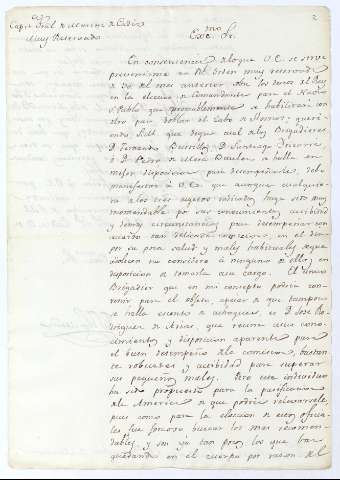 2
Capn. Gral. de Marina de Cadiz
Muy Reservado
Exc.mo Sr.
En consecuencia de lo que V.E. se sirve
prevenirme en Rl. orden muy reservada
de 20 del mes anterior sobre los deseos del Rey
en la eleccion de Comandante para el Navio
Sn. Pablo que probablemente se habilitará con
otro para doblar el Cabo de Hornos; querien
do S.M. que diga cual de los Brigadieres
D. Fernando Bustillos, D. Santiago Irizarri,
ó D. Pedro de Mesa se halla en
mejor disposicion para desempeñarla, debo
manifestar á V.E. que aunque cualquie
ra de los tres sugetos indicados, haya sido muy
recomendable por sus conocimientos, actividad
y demas circunstancias para desempeñar con
acierto tan delicada comision; en el dia
por su poca salud y males habituales de que
adolecen no considero á ninguno de ellos en
disposicion de tomarla á su cargo. El unico
Brigadier que en mi concepto podria con
venir para el objeto, apesar de que tampoco
se halla esento de achaques es D. José Ro
driguez de Arias, que reune estos cono
cimientos y disposicion aparente para
el buen desempeño de la comision, bastan
te robustez y actividad para superar
sus pequeños males. Pero este individuo
ha sido propuesto para la pacificacion
de la America de que podria relevarsele
pues como para la eleccion de estos oficia
les fue forzoso buscar los mas recomen
dables, y son ya tan pocos los que han
quedando en el cuerpo por razon de el